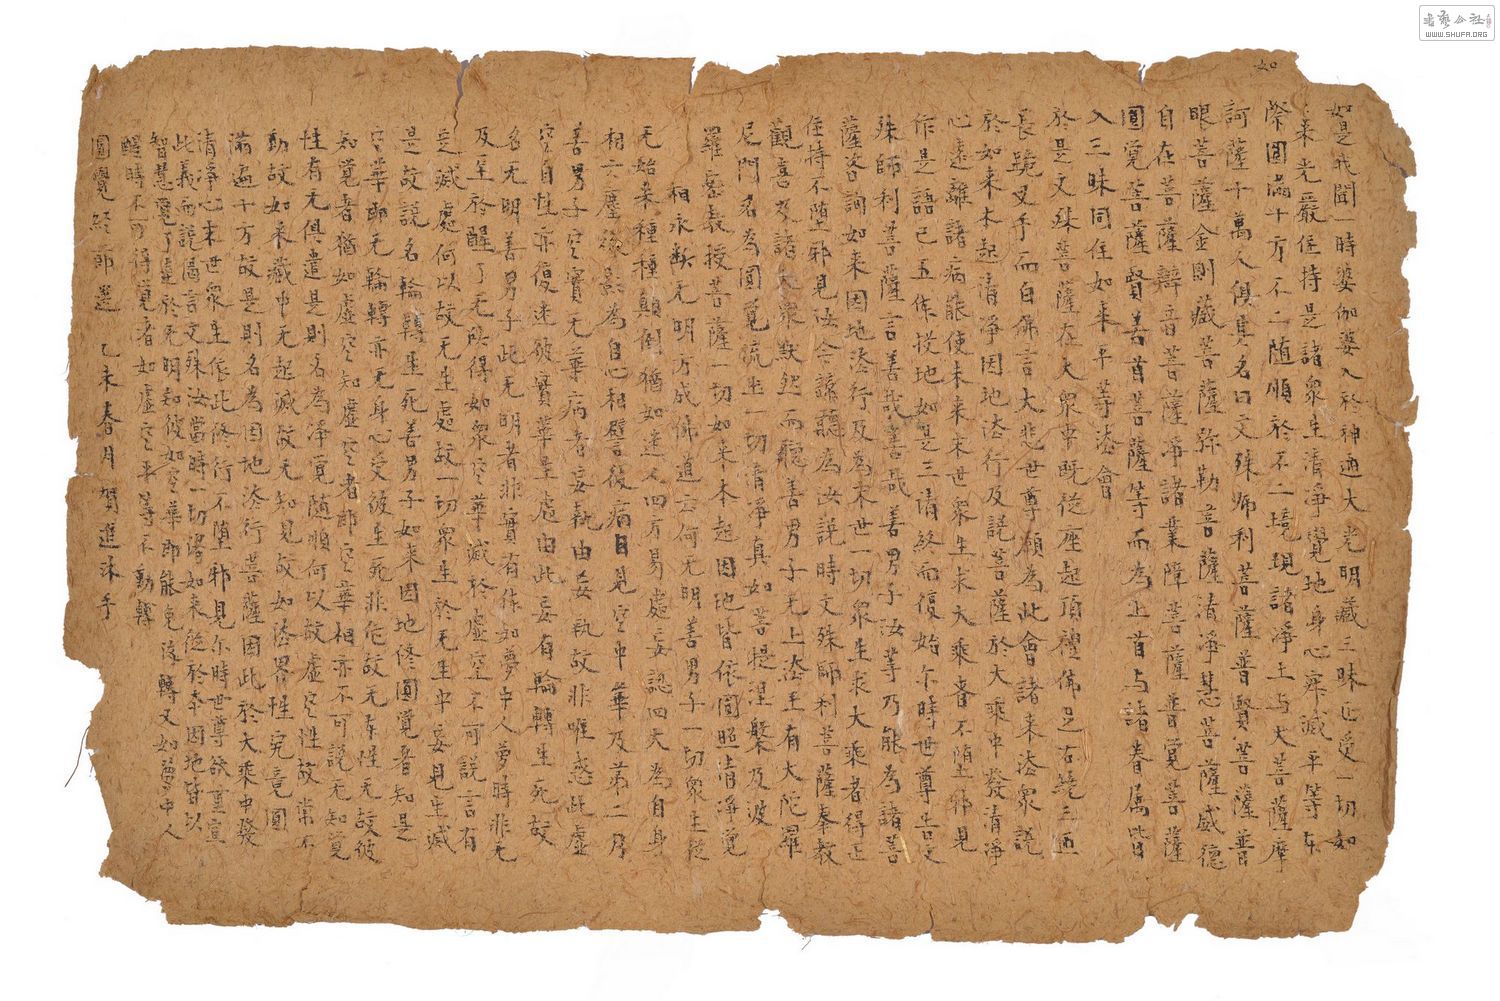 如
如是我聞一時婆伽婆入於神通大光明藏三昧正受一切如
來光嚴住持是諸衆生清淨覺地身心寂滅平等本
際圓滿十方不二随順於不二境現諸淨土与大菩薩摩
訶薩十萬人俱其名曰文殊师利菩薩普賢菩薩普
眼菩薩金剛藏菩薩弥勒菩薩清淨慧菩薩威德
自在菩薩辯音菩薩淨諸業障菩薩普覚菩薩
圓覚菩薩賢善首菩薩等而為上首与諸眷属皆
入三昧同住如来平等法會
於是文殊菩薩在大衆中既從座起頂禮佛足右繞三匝
長跪叉手而白佛言大悲世尊願為此會諸来法衆説
於如来本起清淨因地法行及説菩薩於大乘中發清淨
心遠離諸病能使未来末世衆生求大乘者不堕邪見
作是語已五体投地如是三請終而復始尒時世尊告文
殊師利菩薩言善哉善哉善男子汝等乃能為諸菩
薩咨詢如来因地法行及為末世一切衆生求大乘者得正
住持不堕邪見汝今諦聽為汝説時文殊師利菩薩奉教
觀喜及諸大衆默然而聽善男子无上法王有大陀羅
尼門名為圓覚流出一切清淨真如菩提涅槃及波
羅蜜教授菩薩一切如来本起因地皆依圓照清淨覚
相永断无明方成佛道云何无明善男子一切衆生從
无始来種種顛倒猶如迷人四方易處妄認四大為自身
相六塵緣影為自心相譬彼病目見空中華及第二月
善男子空實无華病者妄執由妄執故非唯惑此虛
空自性亦復迷彼實華生處由此妄有輪轉生死故
名无明善男子此无明者非實有体如夢中人夢時非无
及至於醒了无所得如衆空華滅於虛空不可説言有
定滅處何以故无生處故一切衆生於无生中妄見生滅
是故説名輪轉生死善男子如来因地修圓覚者知是
空華即无輪轉亦无身心受彼生死非作故无本性无故彼
知覚者猶如虛空知虛空者即空華相亦不可説无知覚
性有无俱遣是則名為淨覚随順何以故虛空性故常不
動故如来藏中无起滅故无知見故如法界性究竟圓
滿遍十方故是則名為因地法行菩薩因此於大乘中發
清淨心末世衆生依此修行不堕邪見尒時世尊欲重宣
此義而説偈言文殊汝當時一切諸如来從於本因地皆以
智慧覺了達於无明知彼如空華即能免流轉又如夢中人
醒時不可得覚者如虛空平等不動轉
圓覺經節選 乙未春月賀進沐手
書藝公社
WWW.SHUFA.ORG